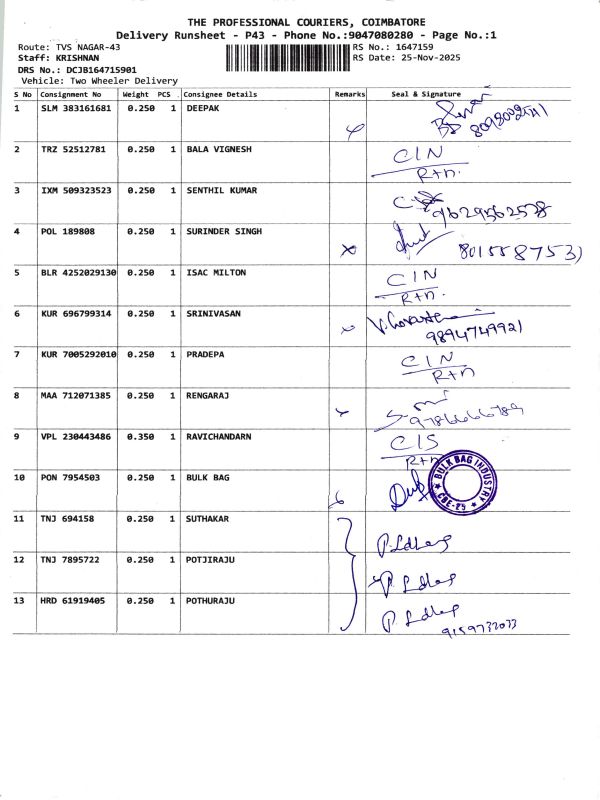 THE PROFESSIONAL COURIERS, COIMBATORE
Delivery Runsheet - P43 - Phone No.:9047080280 - Page No.:1
Route: TVS NAGAR-43 RS No.: 1647159
Staff: KRISHNAN RS Date: 25-Nov-2025
DRS No.: DCJB164715901
Vehicle: Two Wheeler Delivery
S No Consignment No Weight PCS Consignee Details Remarks Seal & Signature
1 SLM 383161681 0.250 1 DEEPAK
2 TRZ 52512781 0.250 1 BALA VIGNESH CIN
Rtn.
3 IXM 509323523 0.250 1 SENTHIL KUMAR
9629562578
4 POL 189808 0.250 1 SURINDER SINGH
5 BLR 4252029130 0.250 1 ISAC MILTON CIN
Rtn.
6 KUR 696799314 0.250 1 SRINIVASAN
9894749921
7 KUR 7005292010 0.250 1 PRADEPA CIN
Rtn
8 MAA 712071385 0.250 1 RENGARAJ
9786666789
9 VPL 230443486 0.350 1 RAVICHANDARN CIS
Rtn
10 PON 7954503 0.250 1 BULK BAG BULK BAG INDUSTRY ★ CBE-25 ★
11 TNJ 694158 0.250 1 SUTHAKAR
12 TNJ 7895722 0.250 1 POTJIRAJU
13 HRD 61919405 0.250 1 POTHURAJU
9159732033